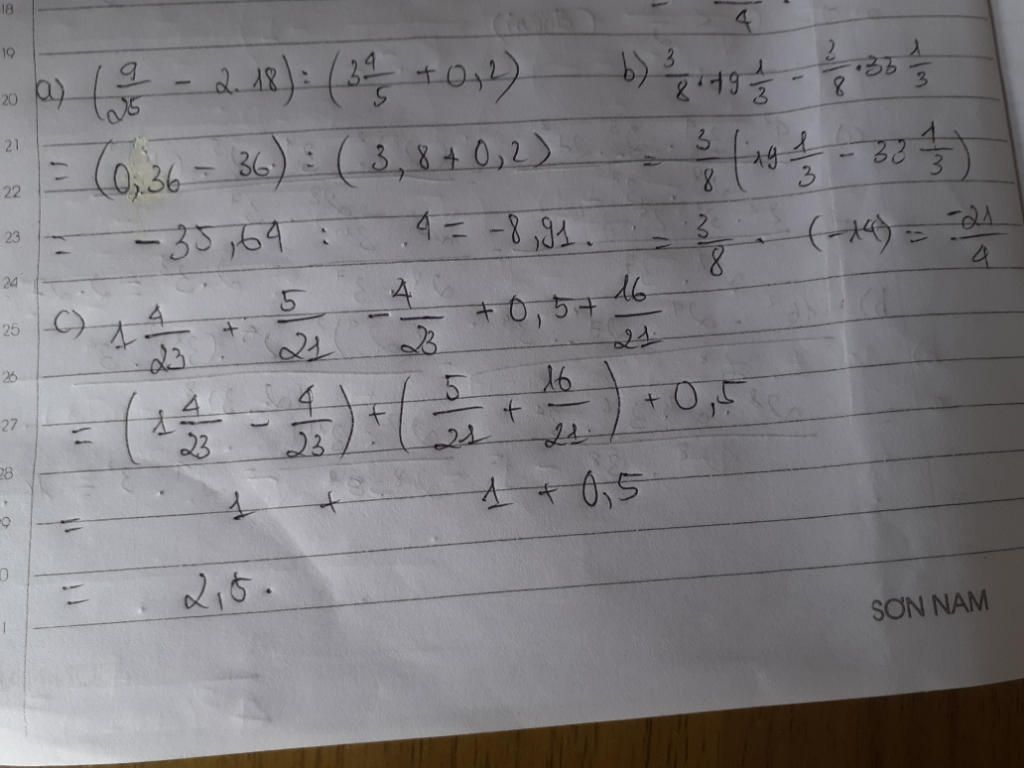 18
4
19
a) (9/25 - 2.18) : (3 4/5 + 0,2)
b) 3/8 . 19 1/3 - 3/8 . 33 1/3
20
21
= (0,36 - 36) : (3,8 + 0,2)
= 3/8 (19 1/3 - 33 1/3)
22
23
= -35,64 : 4 = -8,91.
= 3/8 . (-14) = -21/4
24
25
c) 1 4/23 + 5/21 - 4/23 + 0,5 + 16/21
26
27
= (1 4/23 - 4/23) + (5/21 + 16/21) + 0,5
28
= 1 + 1 + 0,5
= 2,5.
SƠN NAM